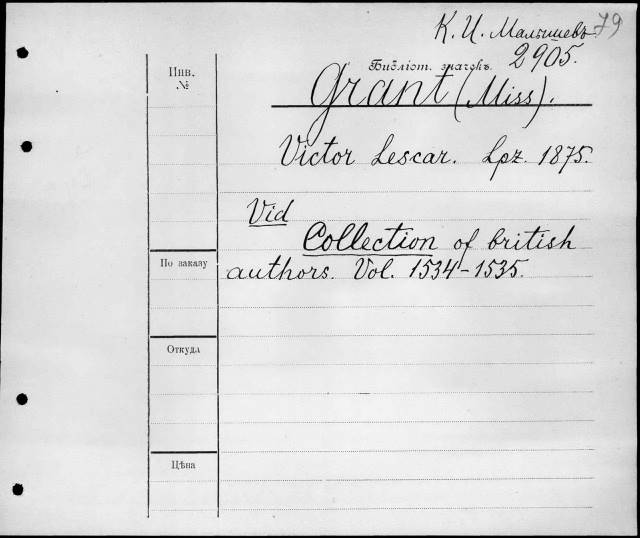 К. И. Малышевъ. 79
2905.
Библіот. значокъ.
Инв.
№
Grant (Miss).
Victor Lescar. Lpz. 1875.
Vid
Collection of british
authors. Vol. 1534-1535.
По заказу
Откуда
Цѣна